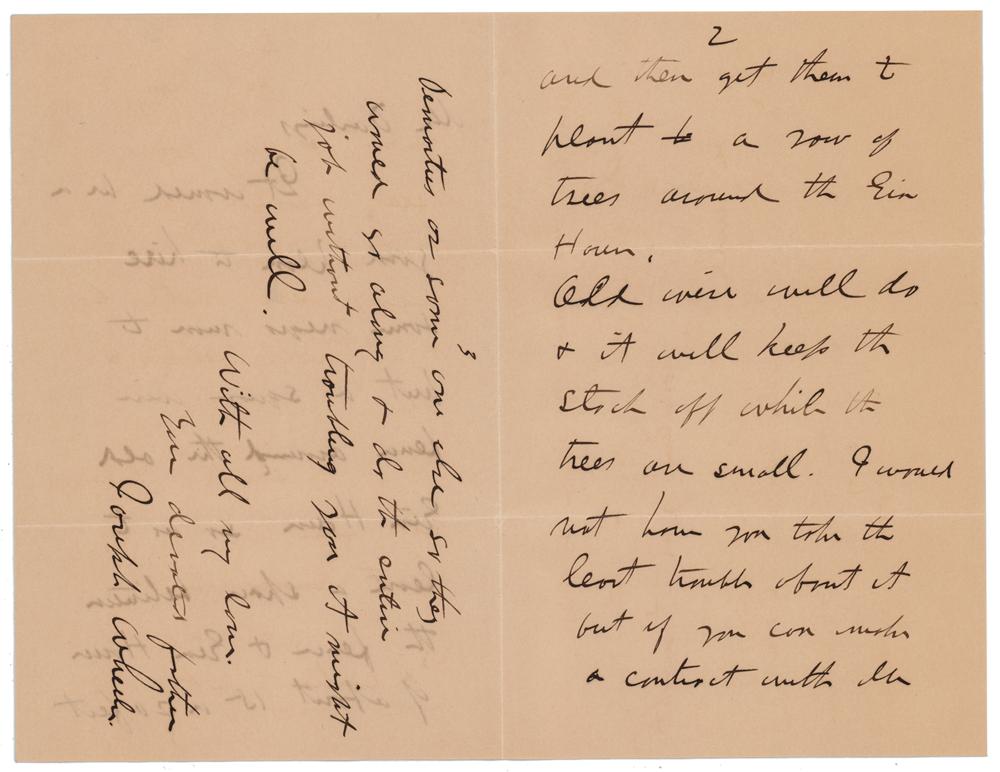 2
and then get them to
plant a row of
trees around the Gin
House.
Old wire will do
& it will keep the
stock off while the
trees are small. I would
not have you take the
least trouble about it
but if you can make
a contract with
3
or some one else so they
would go along & do the entire
job without troubling you it might
be well.
With all my love.
Your devoted father
Joseph Wheeler.